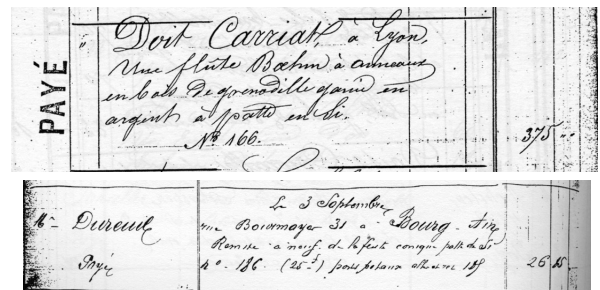 PAYÉ
" Doit Carriat, à Lyon,
Une flûte Bœhm à anneaux
en bois de grenadille garnie en
argent à patte en Si.
N° 166.
375 "
Le 3 Septembre
Dureuil
rue Bourgmayer 31 à Bourg - Ain
Remise à neuf de la flute conique patte de Si
Payé
n° 186 (25 f) ports postaux 185
26 85